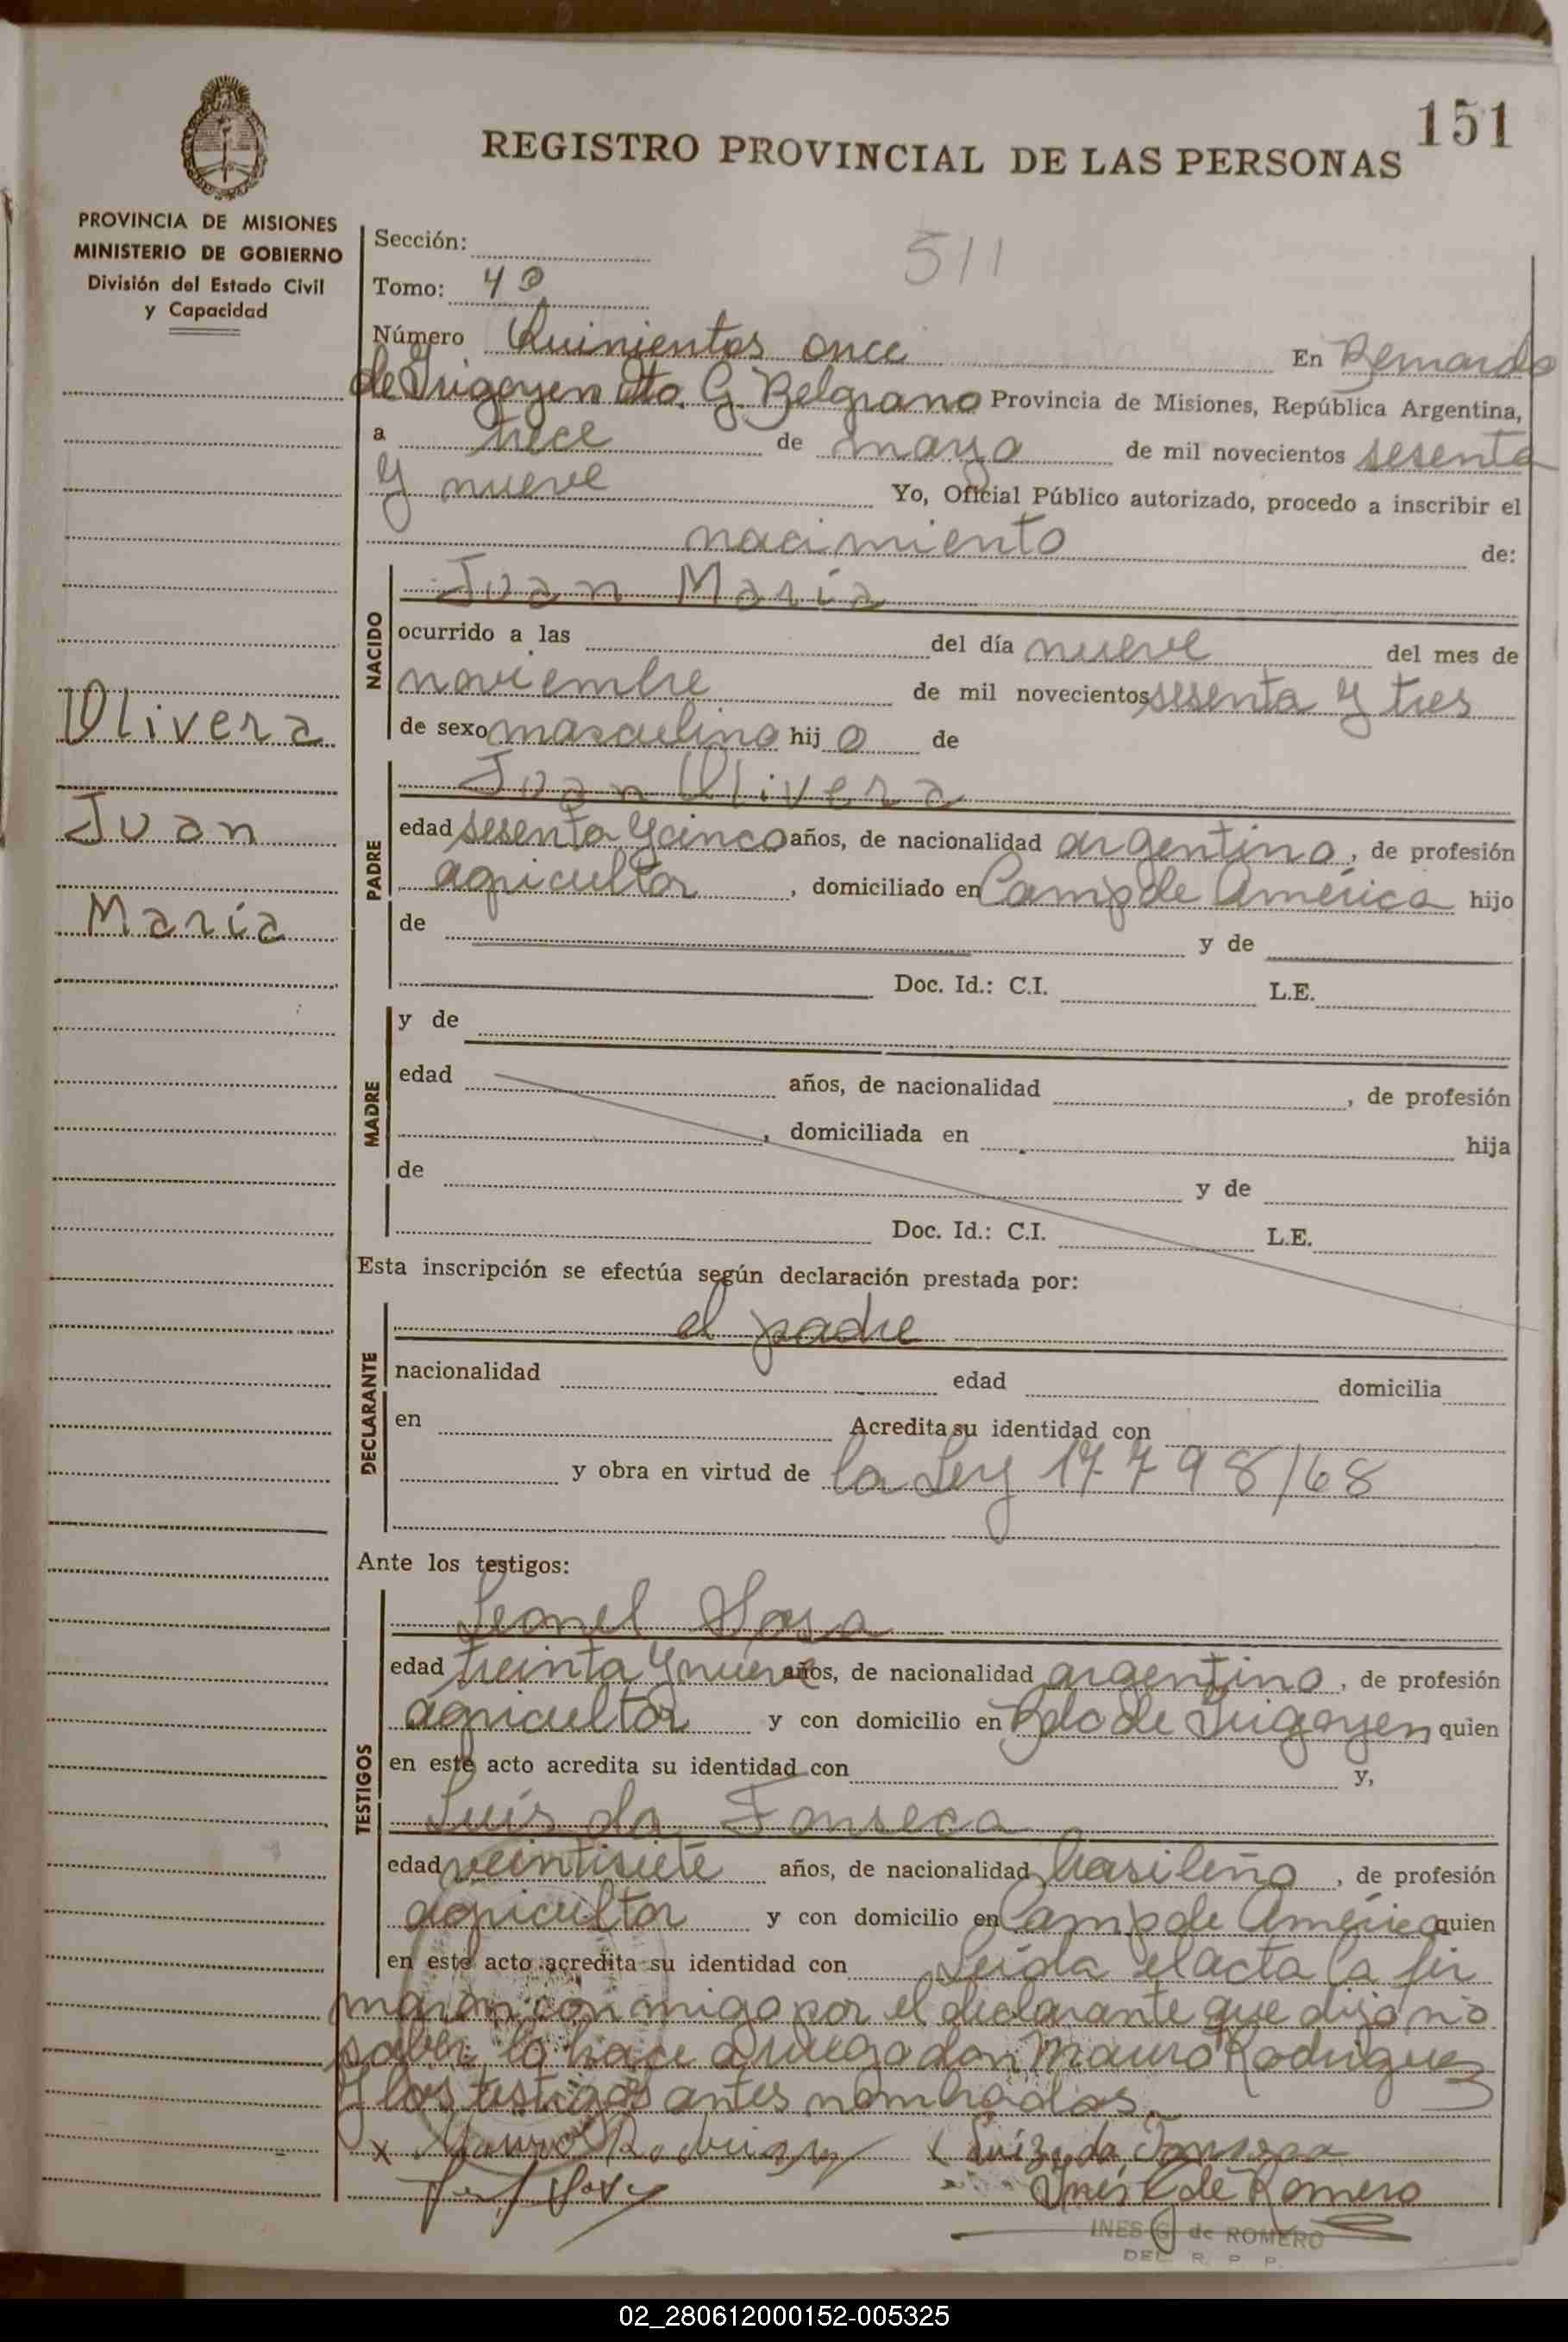 151
REGISTRO PROVINCIAL DE LAS PERSONAS
PROVINCIA DE MISIONES
MINISTERIO DE GOBIERNO
División del Estado Civil
y Capacidad
Sección:
511
Tomo: 4º
Número Quinientos once En Bernardo
de Irigoyen Dto. G. Belgrano Provincia de Misiones, República Argentina,
a trece de mayo de mil novecientos sesenta
y nueve Yo, Oficial Público autorizado, procedo a inscribir el
nacimiento de:
NACIDO
Juan María
ocurrido a las del día nueve del mes de
noviembre de mil novecientos sesenta y tres
de sexo masculino hijo de
Olivera
Juan
María
PADRE
Juan Olivera
edad sesenta y cinco años, de nacionalidad argentino, de profesión
agricultor, domiciliado en Camp de América hijo
de y de
Doc. Id.: C.I. L.E.
MADRE
y de
edad años, de nacionalidad , de profesión
, domiciliada en hija
de y de
Doc. Id.: C.I. L.E.
Esta inscripción se efectúa según declaración prestada por:
DECLARANTE
el padre
nacionalidad edad domicilia
en Acredita su identidad con
y obra en virtud de la Ley 17798/68
Ante los testigos:
TESTIGOS
Leonel Sosa
edad treinta y nueve años, de nacionalidad argentino, de profesión
agricultor y con domicilio en Bdo de Irigoyen quien
en este acto acredita su identidad con y,
Luis da Fonseca
edad veintisiete años, de nacionalidad brasileño, de profesión
agricultor y con domicilio en Camp de América quien
en este acto acredita su identidad con Leída el acta la fir
maron conmigo por el declarante que dijo no
saber lo hace a ruego don Mauro Rodriguez
y los testigos antes nombrados.
x Mauro Rodriguez x Luiz da Fonseca
Inés G de Romero
INES G. de ROMERO
DEL. R. P. P.
02_280612000152-005325